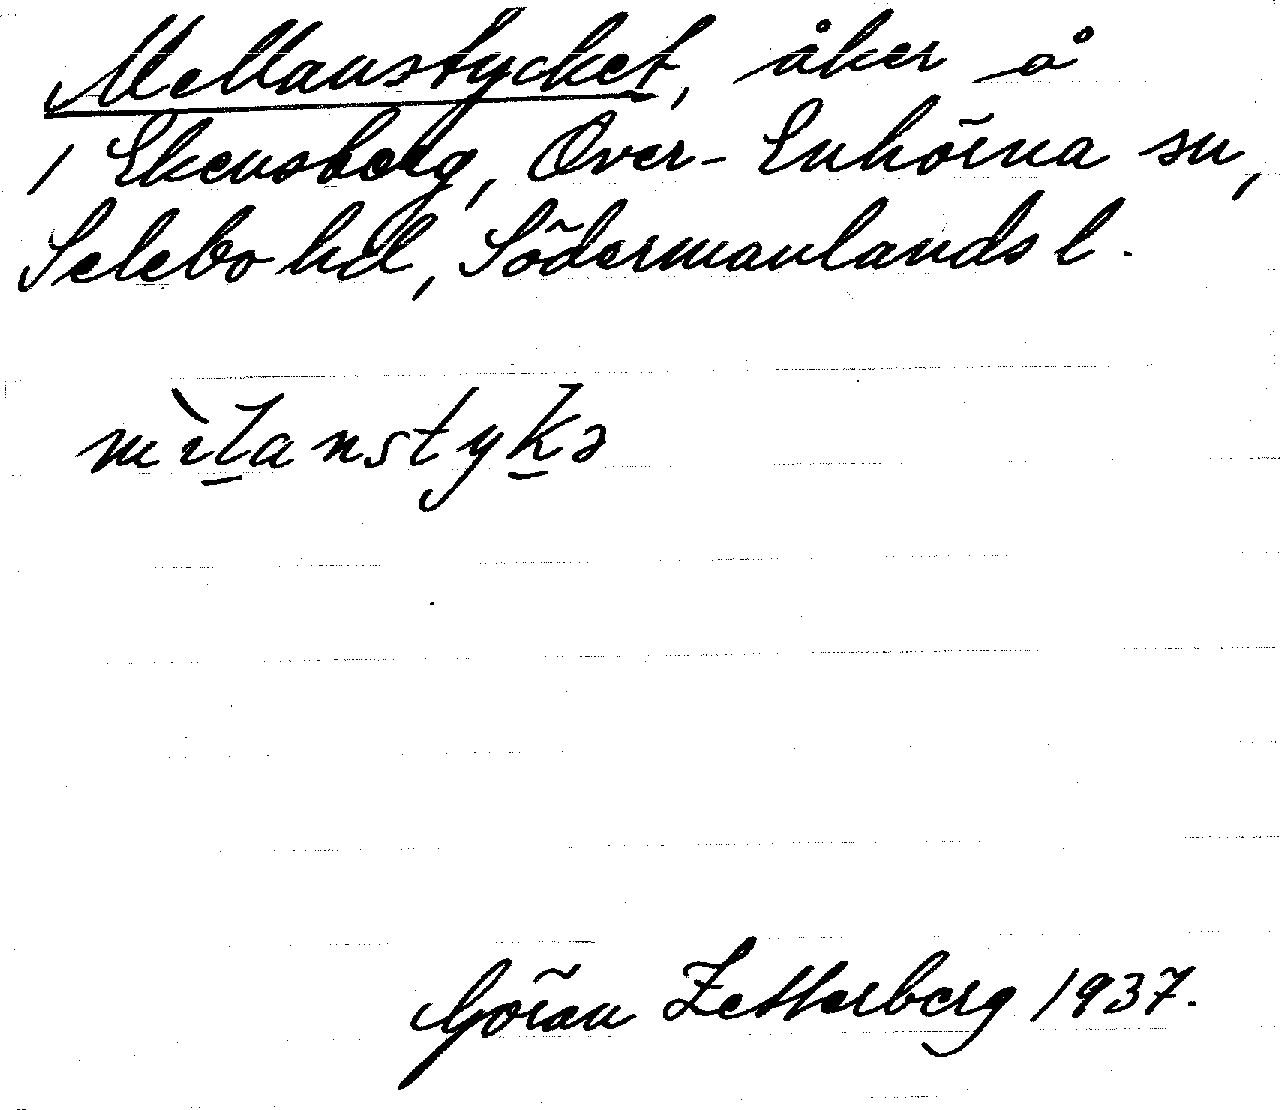 Mellanstycket, åker å
1 Ekensberg, Över-Enhörna sn,
Selebo hd, Södermanlands l.
mìlanstykə
Göran Zetterberg 1937.